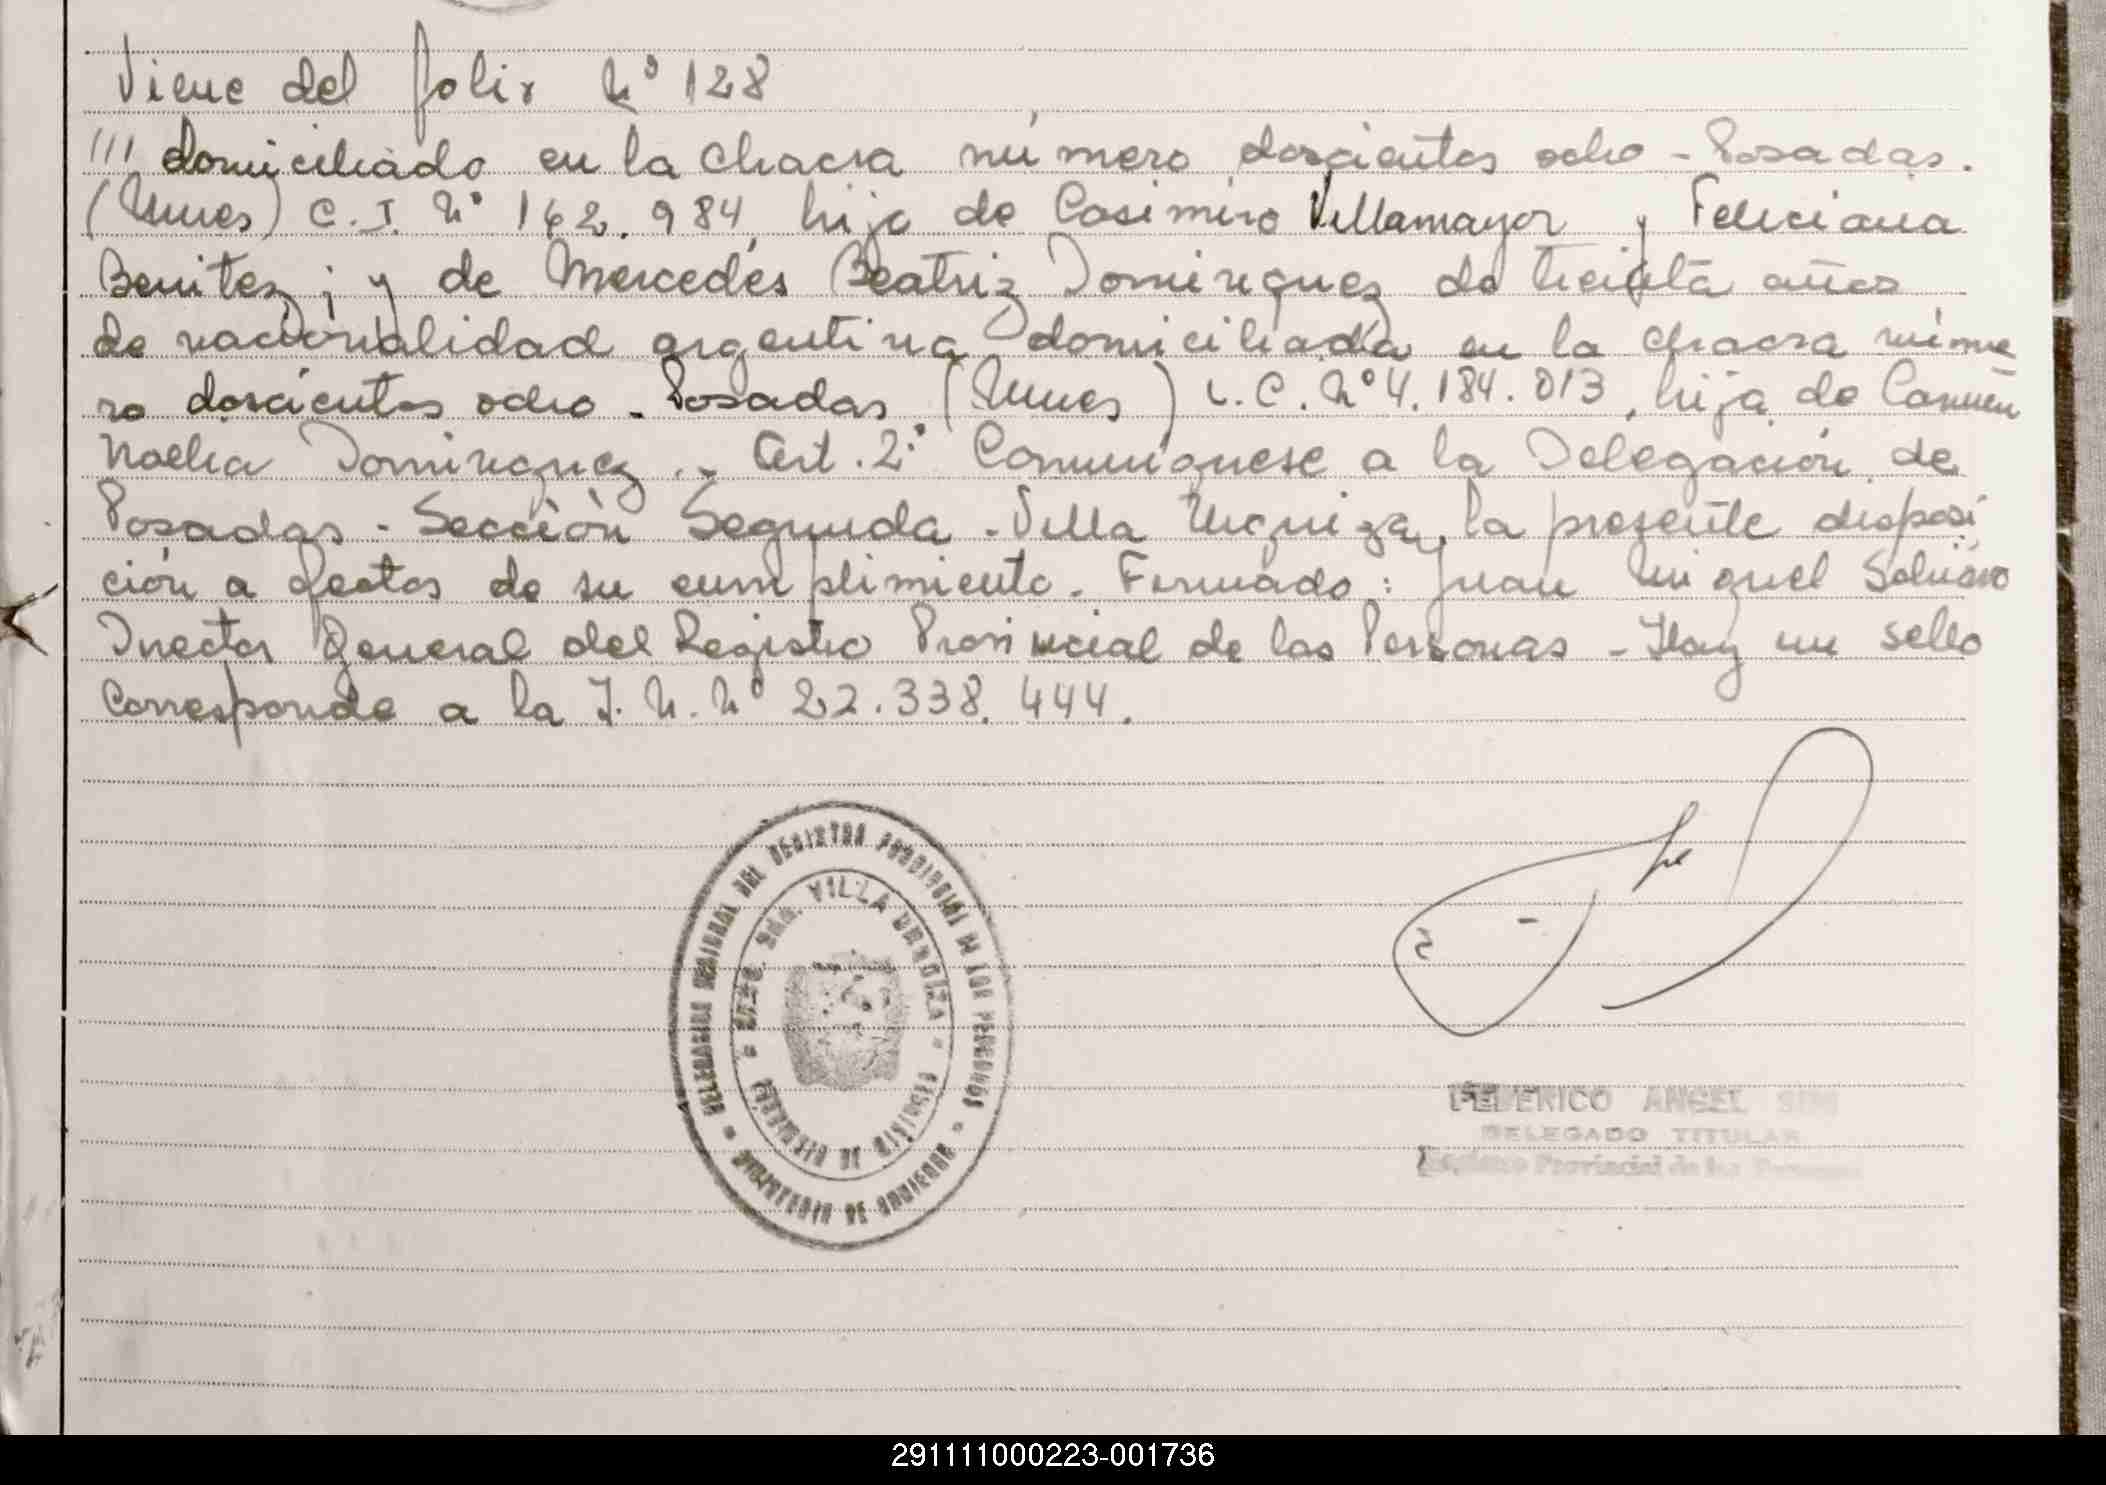 Viene del folio Nº 128
/// domiciliado en la chacra número doscientos ocho - Posadas.
(Mnes) C.I. Nº 162.984, hijo de Casimiro Villamayor y Feliciana
Benitez; y de Mercedes Beatriz Domirguez de treinta años
de nacionalidad argentina domiciliada en la chacra núme
ro doscientos ocho - Posadas (Mnes) L.C. Nº 4.184.013, hija de Carmen
Noelia Domirguez.. Art. 2º Comuniquese a la Delegación de
Posadas - Sección Segunda - Villa Urquiza, la presente disposi
ción a efectos de su cumplimiento. Firmado: Juan Miguel
Director General del Registro Provincial de las Personas - Hay un sello
Corresponde a la I.N. Nº 22.338.444.
DELEGACION REGIONAL DEL REGISTRO PROVINCIAL DE LAS PERSONAS
MINISTERIO DE GOBIERNO
SECC. 2da. VILLA URQUIZA
FEDERICO ANGEL
DELEGADO TITULAR
Registro Provincial de las Personas
291111000223-001736